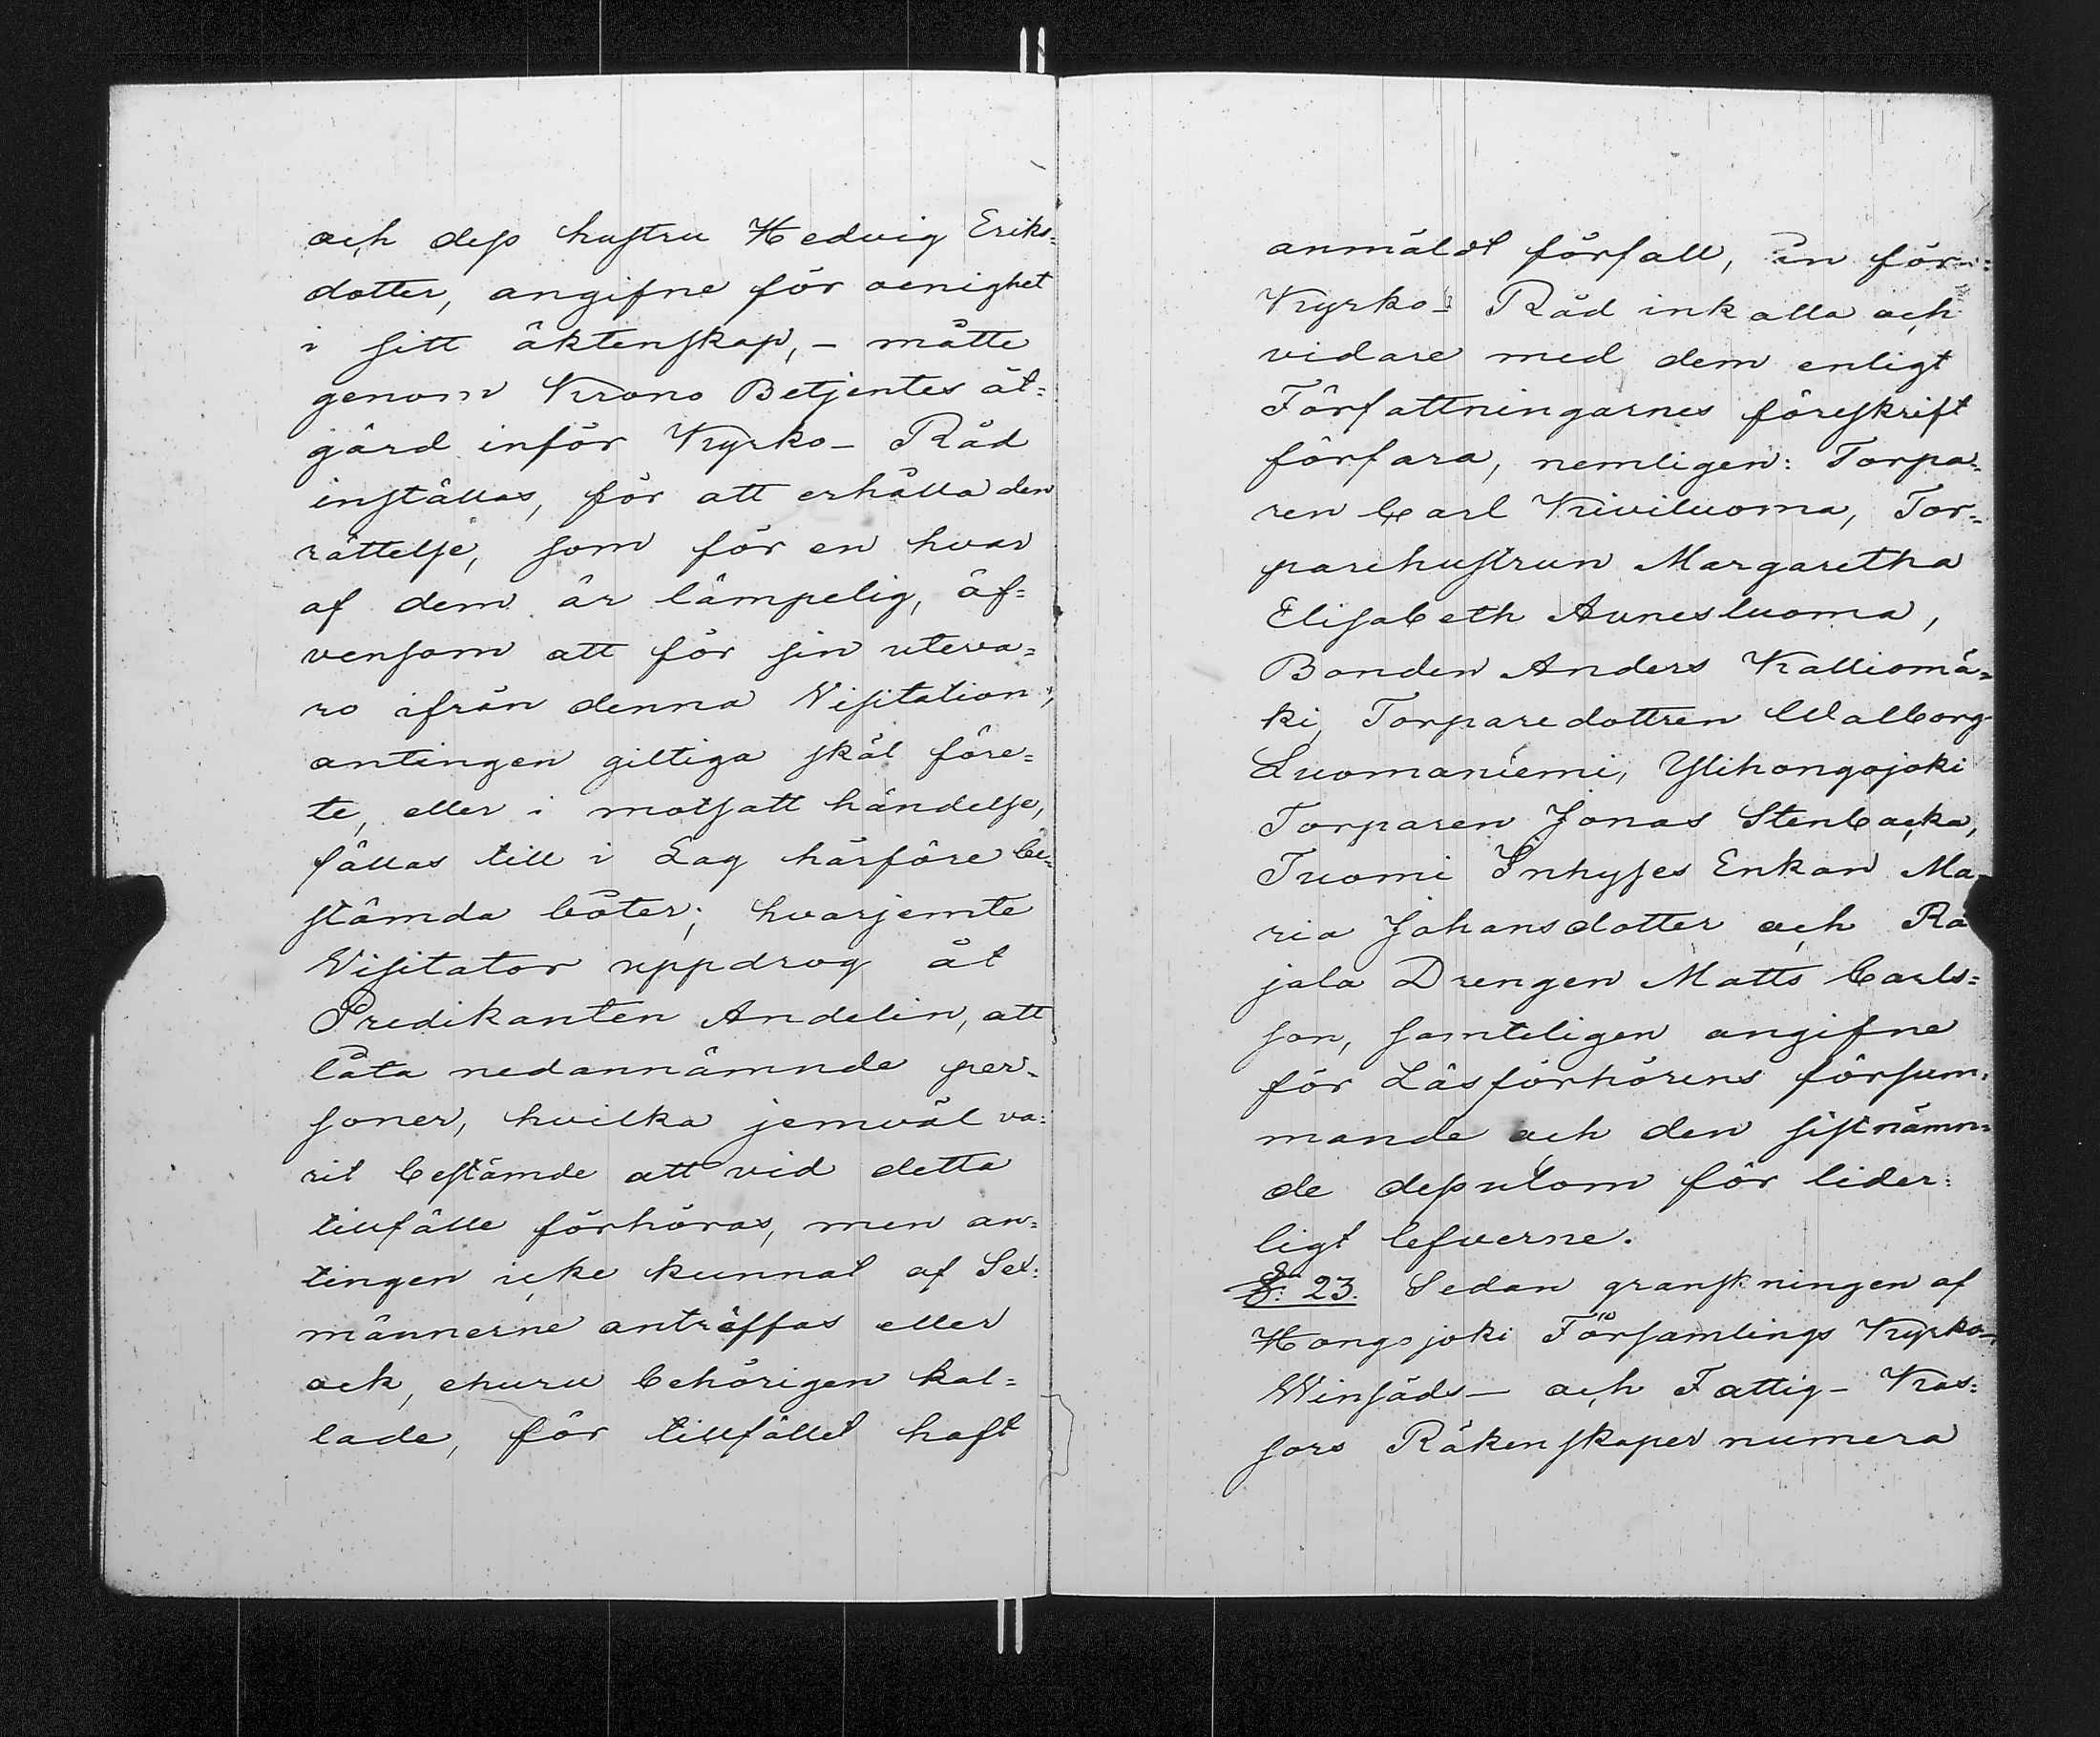 och dess hustru Hedvig Eriks=
dotter, angifne för oenighet
i sitt äktenskap, - måtte
genom Krono Betjentes åt=
gärd inför Kyrko- Råd
inställas, för att erhålla den
rättelse, som för en hvar
af dem är lämpelig, äf=
vensom att för sin uteva=
ro ifrån denna Visitation,
antingen giltiga skäl före=
te, eller i motsatt händelse,
fällas till i Lag härföre be=
stämda böter; hvarjemte
Visitator uppdrog åt
Predikanten Andelin, att
låta nedannämnde per=
soner, hvilka jemväl va=
rit bestämde att vid detta
tillfälle förhöras, men an=
tingen icke kunnat af Sex=
männerne anträffas eller
ock, ehuru behörigen kal=
lade, för tillfället haft
anmäldt förfall, in för
Kyrko- Råd inkalla och
vidare med dem enligt
Författningarnes föreskrift
förfara, nemligen: Torpa=
ren Carl Kiviluoma, Tor=
parehustrun Margaretha
Elisabeth Aunesluoma,
Bonden Anders Kalliomä=
ki, Torparedottren Walborg
Luomaniemi, Ylihongojoki
Torparen Jonas Stenbacka,
Tuomi Inhyses Enkan Ma=
ria Johansdotter och Ra
jala Drengen Matts Carls=
son, samteligen angifne
för Läsförhörens försum=
mande och den sistnämn=
de dessutom för lider=
ligt lefverne.
§. 23. Sedan granskningen af
Hongojoki Församlings Kyrko-
Winsäds- och Fattig- Kas=
sors Räkenskaper numera